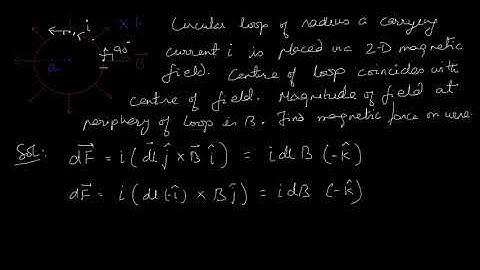 i
r
× F
Circular loop of radius a carrying
90°
current i is placed in a 2-D magnetic
B
a
field. Centre of loop coincides with
centre of field. Magnitude of field at
periphery of loop is B. Find magnetic force on wire.
Sol: dF⃗ = i (dl⃗ ĵ × B⃗ î) = i dl B (-k̂)
dF⃗ = i (dl (-î) × B ĵ) = i dB (-k̂)